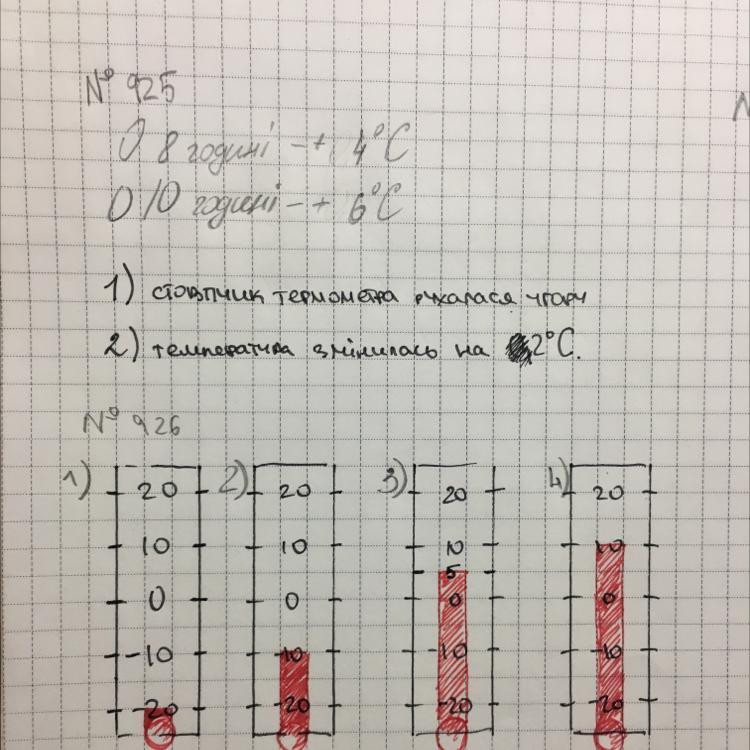 № 925
О 8 годині - + 4°C
О 10 годині - + 6°C
1) стовпчик термометра рухалася угору
2) температура змінилась на 2°C.
№ 926
1) 2) 3) 4)
20 20 20 20
10 10 10 10
5
0 0 0 0
-10 -10 -10 -10
-20 -20 -20 -20